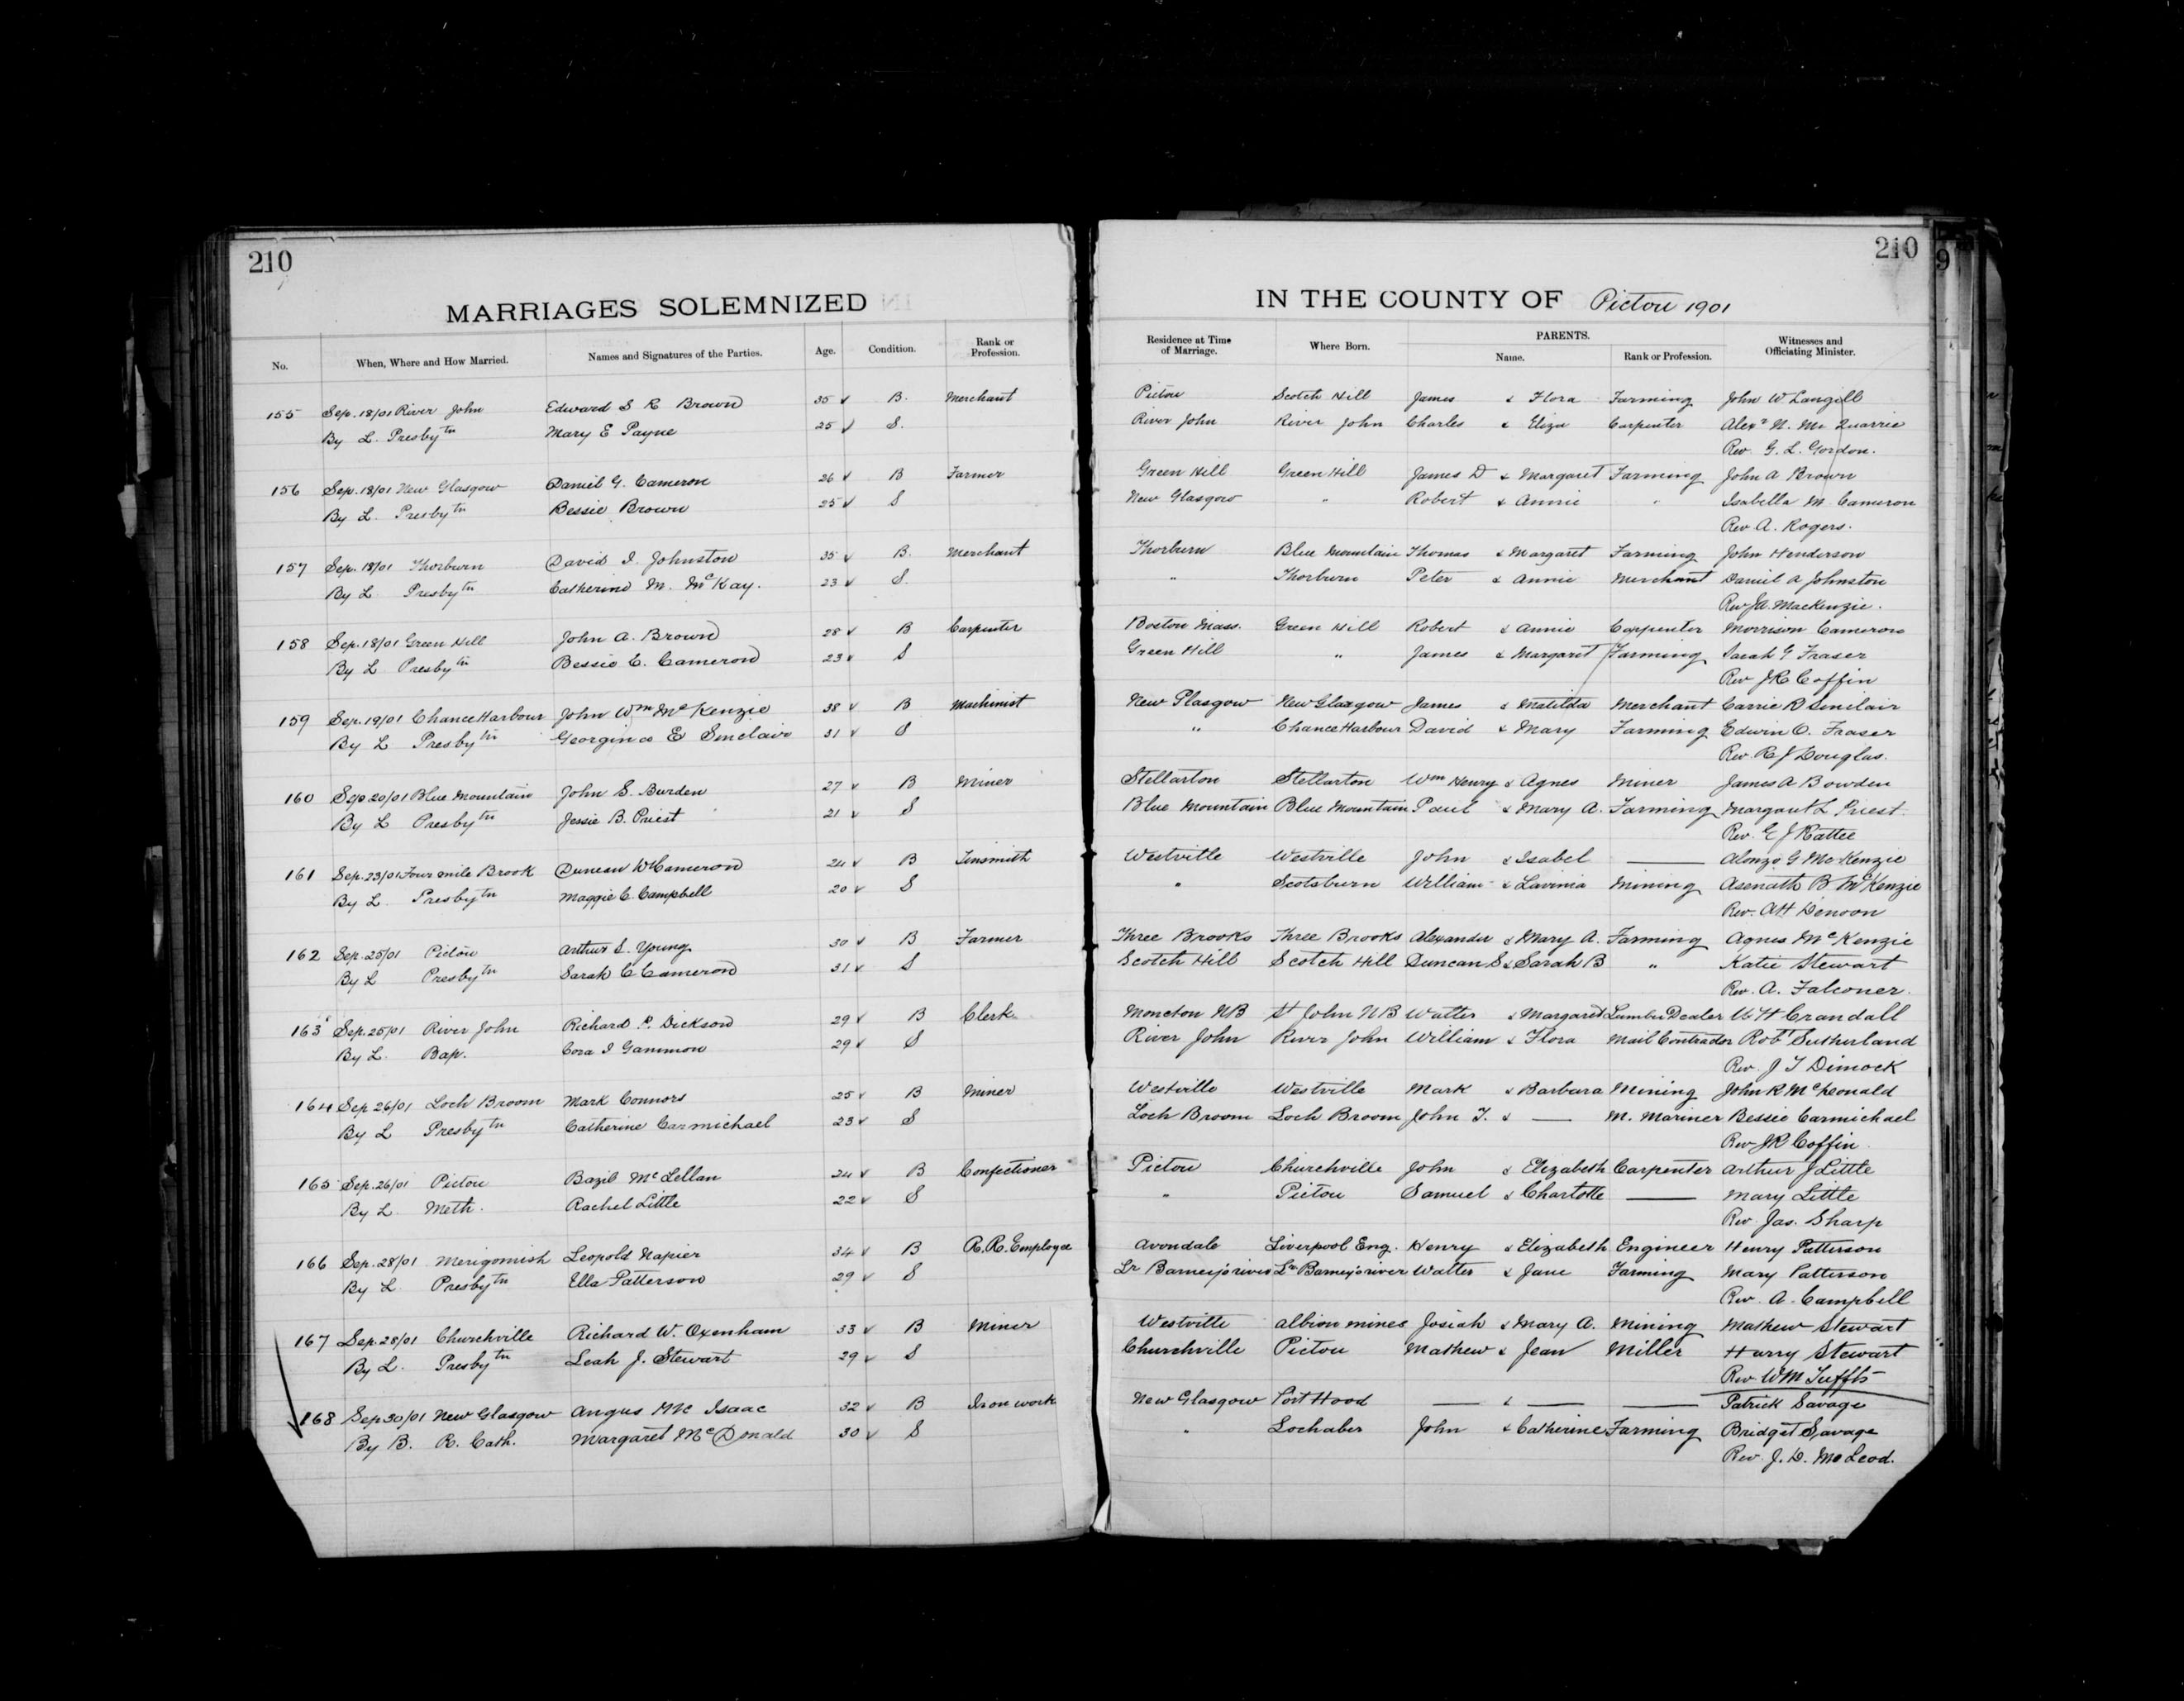 210
210
9
MARRIAGES SOLEMNIZED
IN THE COUNTY OF Pictou 1901
No. When, Where and How Married. Names and Signatures of the Parties. Age. Condition. Rank or Profession. Residence at Time of Marriage. Where Born. PARENTS. Name. Rank or Profession. Witnesses and Officiating Minister.
155 Sep. 18/01 River John Edward S R Brown 35 B. Merchant Pictou Scotch Hill James & Flora Farming John W Langill
By L. Presbytn Mary E Payne 25 S. River John River John Charles & Eliza Carpenter Alexr N. Mc Quarrie
Rev. G. L. Gordon.
156 Sep. 18/01 New Glasgow Daniel G. Cameron 26 B Farmer Green Hill Green Hill James D & Margaret Farming John A Brown
By L. Presbytn Bessie Brown 25 S New Glasgow " Robert & Annie " Isabella M. Cameron
Rev A. Rogers.
157 Sep. 18/01 Thorburn David I. Johnston 35 B. Merchant Thorburn Blue Mountain Thomas & Margaret Farming John Henderson
By L Presbytn Catherine M. McKay. 23 S. " Thorburn Peter & Annie Merchant Daniel A Johnston
Rev J.A. MacKenzie.
158 Sep. 18/01 Green Hill John A. Brown 28 B Carpenter Boston Mass. Green Hill Robert & Annie Carpenter Morrison Cameron
By L Presbytn Bessie E. Cameron 23 S Green Hill " James & Margaret Farming Sarah G Fraser
Rev J R Coffin
159 Sep. 19/01 Chance Harbour John Wm McKenzie 38 B Machinist New Glasgow New Glasgow James & Matilda Merchant Carrie R Sinclair
By L Presbytn Georgina E Sinclair 31 S " Chance Harbour David & Mary Farming Edwin O. Fraser
Rev. R J Douglas.
160 Sep 20/01 Blue Mountain John S. Burden 27 B Miner Stellarton Stellarton Wm Henry & Agnes Miner James A Bowden
By L Presbytn Jessie B. Priest 21 S Blue Mountain Blue Mountain Paul & Mary A. Farming Margaret L Priest.
Rev. E J Rattee
161 Sep. 23/01 Four mile Brook Duncan W Cameron 24 B Tinsmith Westville Westville John & Isabel — Alonzo G McKenzie
By L. Presbytn Maggie C. Campbell 20 S " Scotsburn William & Lavinia Mining Asenath B McKenzie
Rev. A H Denoon
162 Sep. 25/01 Pictou Arthur S. Young 30 B Farmer Three Brooks Three Brooks Alexander & Mary A. Farming Agnes McKenzie
By L Presbytn Sarah C Cameron 31 S Scotch Hill Scotch Hill Duncan S & Sarah B " Katie Stewart
Rev. A. Falconer.
163 Sep. 25/01 River John Richard P. Dickson 29 B Clerk Moncton NB St John NB Walter & Margaret Lumber Dealer W H Crandall
By L. Bap. Cora I Gammon 29 S River John River John William & Flora Mail Contractor Robt Sutherland
Rev. J T Dimock
164 Sep 26/01 Loch Broom Mark Connors 25 B Miner Westville Westville Mark & Barbara Mining John R McDonald
By L Presbytn Catherine Carmichael 23 S Loch Broom Loch Broom John T. & — M. Mariner Bessie Carmichael
Rev J R Coffin
165 Sep. 26/01 Pictou Bazil McLellan 24 B Confectioner Pictou Churchville John & Elizabeth Carpenter Arthur J Little
By L. Meth. Rachel Little 22 S " Pictou Samuel & Charlotte — Mary Little
Rev. Jas. Sharp
166 Sep. 28/01 Merigomish Leopold Napier 34 B R.R. Employee Avondale Liverpool Eng. Henry & Elizabeth Engineer Henry Patterson
By L. Presbytn Ella Patterson 29 S Lr Barney's river Lr Barney's river Walter & Jane Farming Mary Patterson
Rev. A. Campbell
167 Sep. 28/01 Churchville Richard W. Oxenham 33 B Miner Westville Albion mines Josiah & Mary A. Mining Mathew Stewart
By L. Presbytn Leah J. Stewart 29 S Churchville Pictou Mathew & Jean Miller Harry Stewart
Rev W M Tuffts
168 Sep 30/01 New Glasgow Angus Mc Isaac 32 B Iron work New Glasgow Port Hood — & — — Patrick Savage
By B. R. Cath. Margaret McDonald 30 S " Lochaber John & Catherine Farming Bridget Savage
Rev. J. D. McLeod.